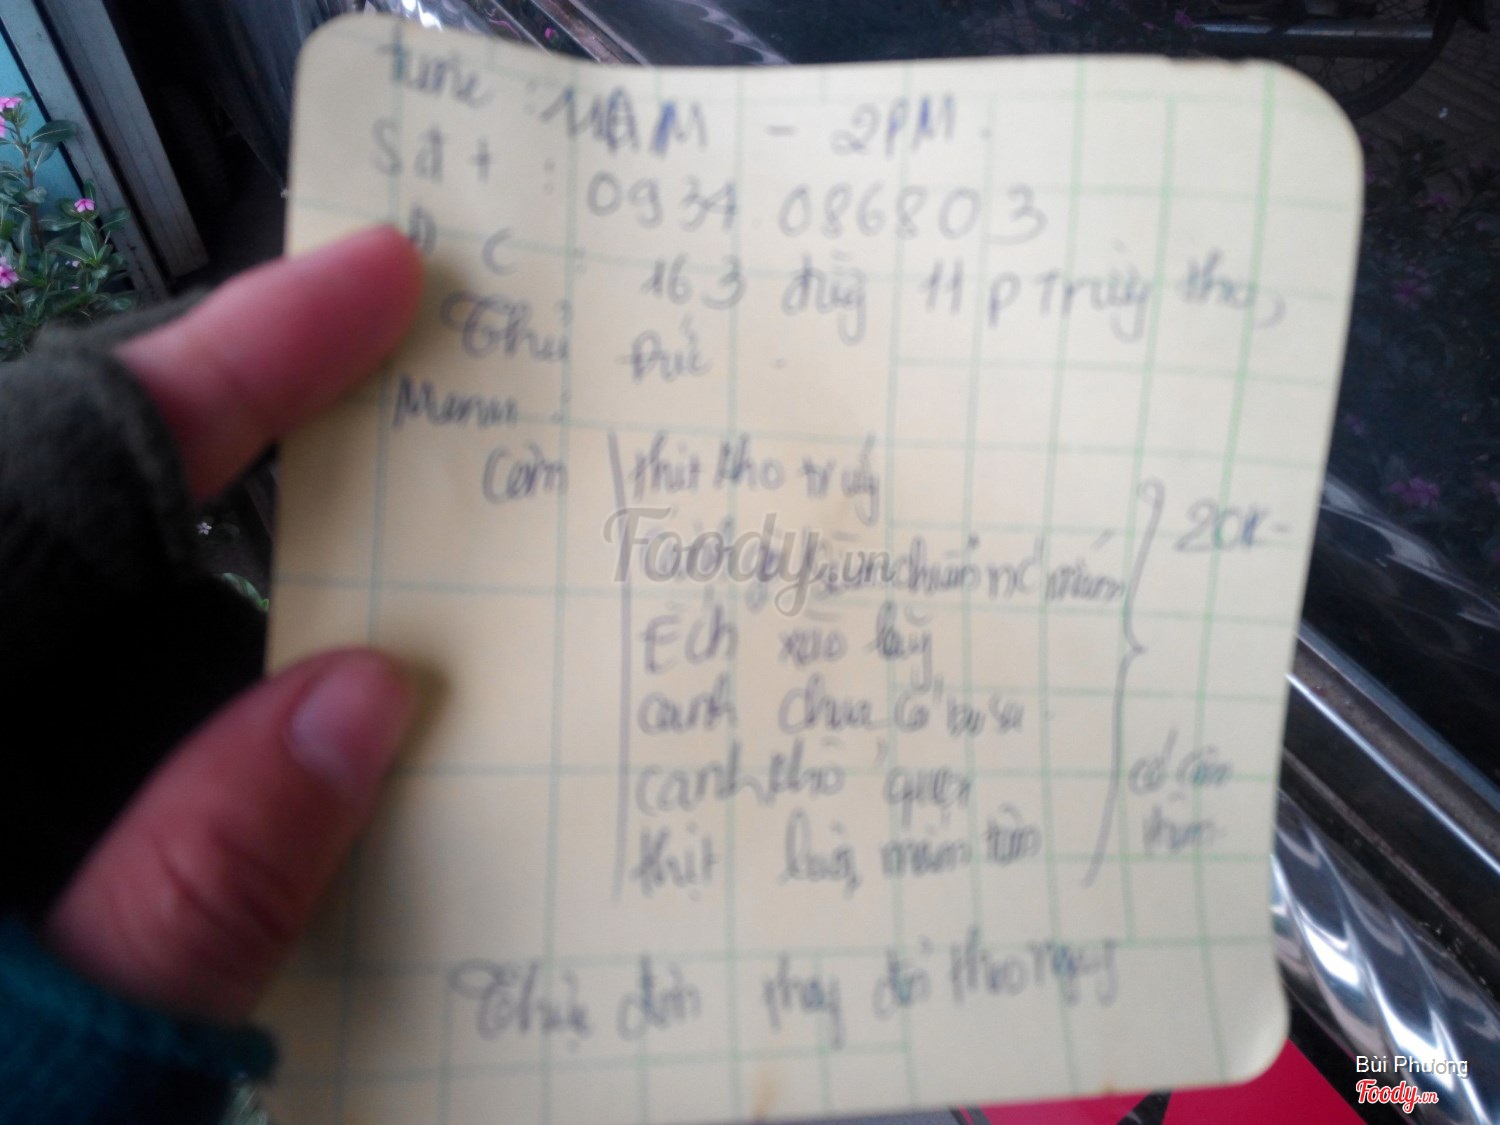 time : AM - 2PM.
Sđt : 0934 086803
ĐC : 163 đường 11 P Trường thọ,
Thủ Đức.
Menu :
Cơm
thịt kho trứng
20K
Foody.vn
Ếch xào
canh chua
canh khổ qua
thịt luộc mắm
có cơm
thêm
Thực đơn thay đổi theo ngày
Bùi Phương
Foody.vn